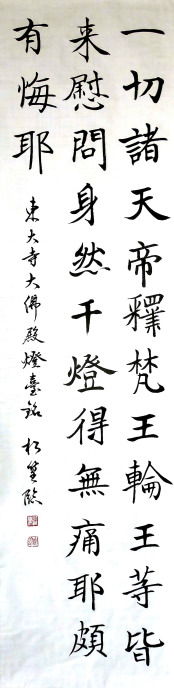 一切諸天帝釋梵王輪王等皆
来慰問身然千燈得無痛耶頗
有悔耶
東大寺大佛殿燈臺銘